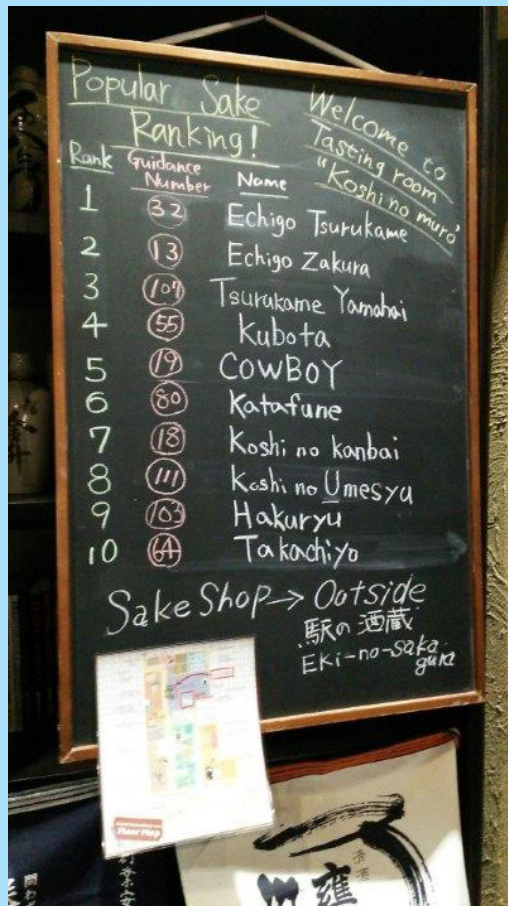 Popular Sake
Ranking!
Welcome to
Tasting room
"Koshi no muro"
Rank Guidance Number Name
1 32 Echigo Tsurukame
2 13 Echigo Zakura
3 107 Tsurukame Yamahai
4 55 Kubota
5 19 COWBOY
6 80 Katafune
7 18 Koshi no kanbai
8 111 Koshi no Umesyu
9 103 Hakuryu
10 64 Takachiyo
Sake Shop → Outside
駅の酒蔵
Eki-no-saka
gura
Floor Map
清酒